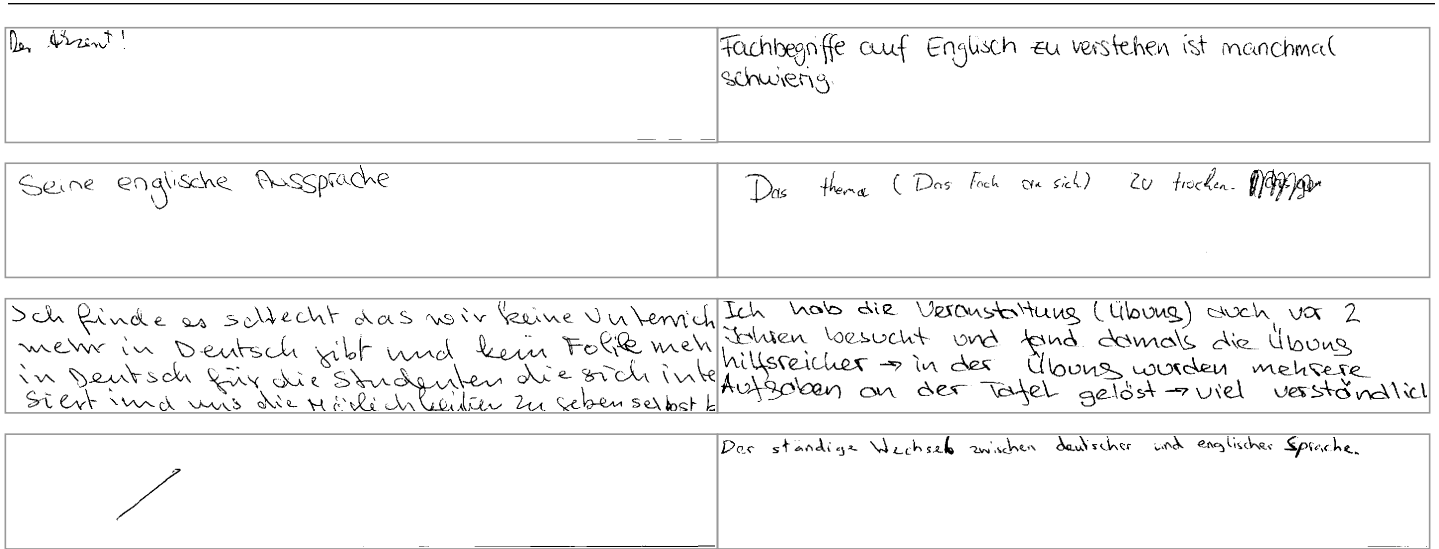 Der Akzent!
Fachbegriffe auf Englisch zu verstehen ist manchmal
schwierig.
Seine englische Aussprache
Das thema (Das Fach an sich) zu trocken.
Ich finde es schlecht das wir keine Unterrich
mehr in Deutsch gibt und kein Folie meh
in Deutsch für die Studenten die sich inte
siert und uns die Möglichkeiten zu geben selbst
Ich hab die Veranstaltung (Übung) auch vor 2
Jahren besucht und fand damals die Übung
hilfsreicher → in der Übung wurden mehrere
Aufgaben an der Tafel gelöst → viel verständlich
Der ständige Wechsel zwischen deutscher und englischer Sprache.